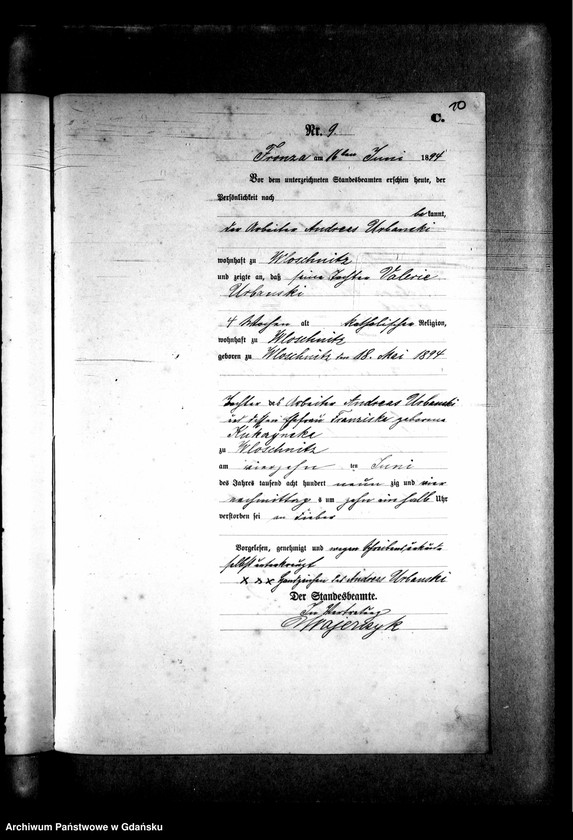 10
C.
Nr. 9.
Fronza am 16ten Juni 1894
Vor dem unterzeichneten Standesbeamten erschien heute, der
Persönlichkeit nach
bekannt,
der Arbeiter Andreas Urbanski
wohnhaft zu Wloschnitz
und zeigte an, daß seine Tochter Valerie
Urbanski
4 Wochen alt katholischer Religion,
wohnhaft zu Wloschnitz
geboren zu Wloschnitz den 18. Mai 1894
Tochter des Arbeiter Andreas Urbanski
und dessen Ehefrau Franziska geborene
zu Wloschnitz
am vierzehn ten Juni
des Jahres tausend acht hundert neun zig und vier
nachmittags um zehn ein halb Uhr
verstorben sei an Fieber
Vorgelesen, genehmigt und wegen
selbst unterkreuzt
x x x Handzeichen des Andreas Urbanski
Der Standesbeamte.
In Vertretung
Majerczyk
Archiwum Państwowe w Gdańsku